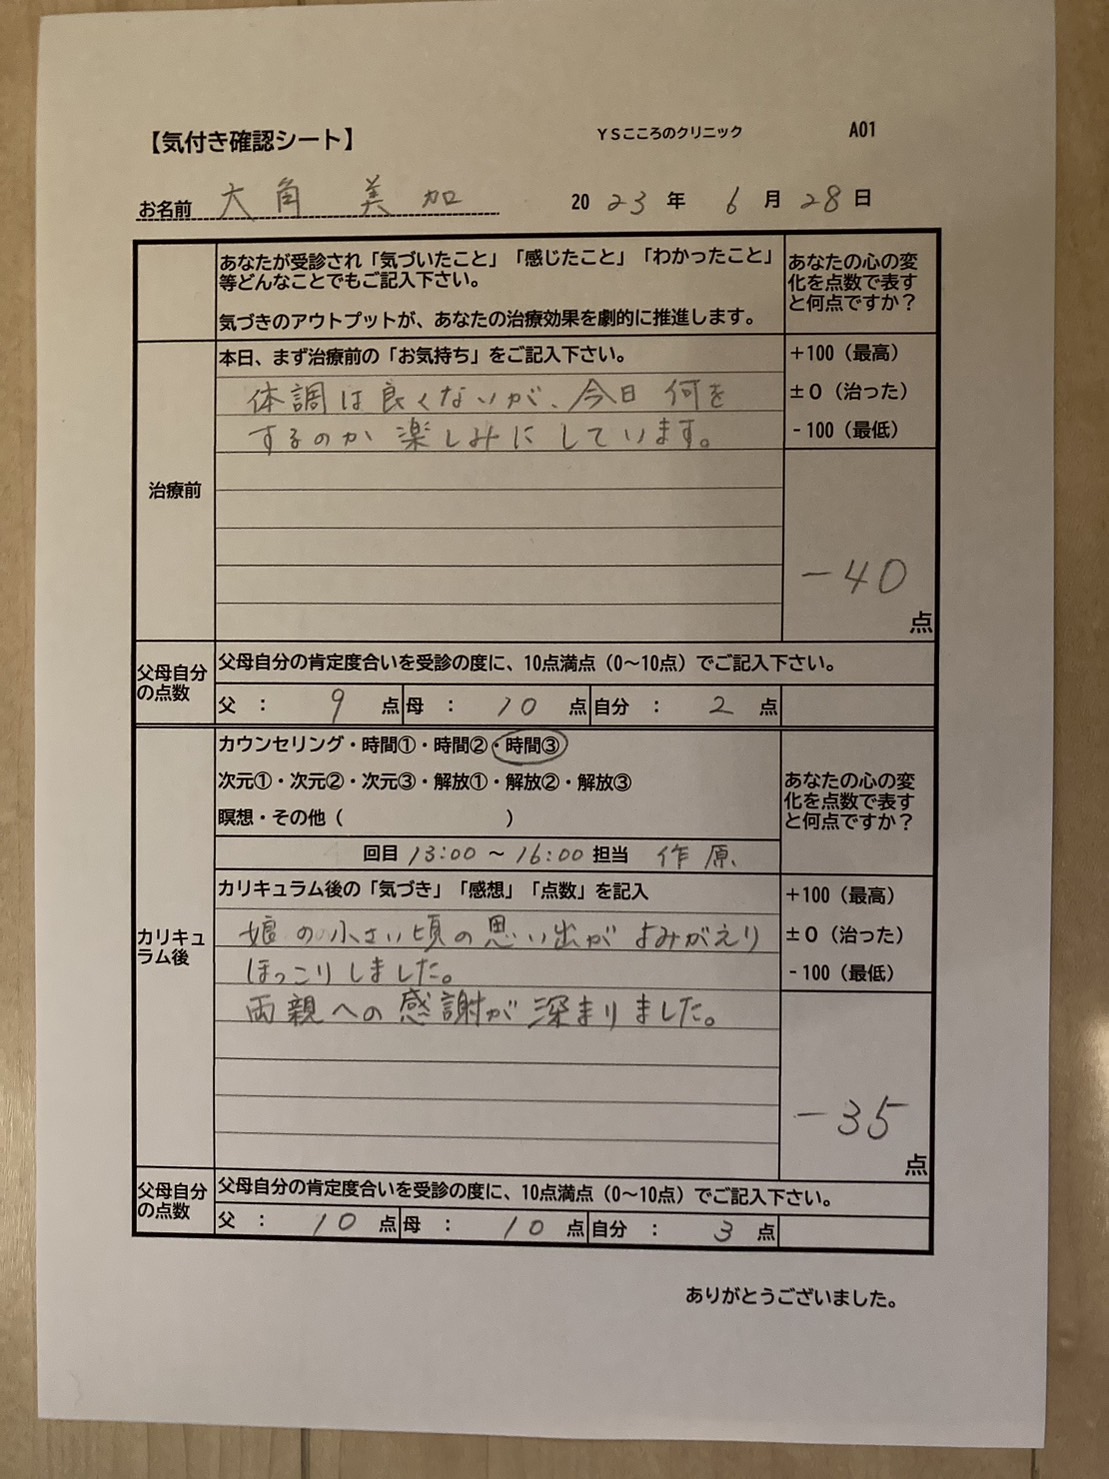 【気付き確認シート】
YSこころのクリニック
A01
お名前 大角 美加
2023年 6月 28日
あなたが受診され「気づいたこと」「感じたこと」「わかったこと」
等どんなことでもご記入下さい。
気づきのアウトプットが、あなたの治療効果を劇的に推進します。
あなたの心の変
化を点数で表す
と何点ですか？
治療前
本日、まず治療前の「お気持ち」をご記入下さい。
体調は良くないが、今日何を
するのか楽しみにしています。
+100（最高）
±0（治った）
-100（最低）
-40
点
父母自分
の点数
父母自分の肯定度合いを受診の度に、10点満点（0～10点）でご記入下さい。
父 ： 9 点 母 ： 10 点 自分 ： 2 点
カリキュ
ラム後
カウンセリング・時間①・時間②・時間③
次元①・次元②・次元③・解放①・解放②・解放③
瞑想・その他（ ）
回目 13:00 ～ 16:00 担当 作原
あなたの心の変
化を点数で表す
と何点ですか？
カリキュラム後の「気づき」「感想」「点数」を記入
娘の小さい頃の思い出がよみがえり
ほっこりしました。
両親への感謝が深まりました。
+100（最高）
±0（治った）
-100（最低）
-35
点
父母自分
の点数
父母自分の肯定度合いを受診の度に、10点満点（0～10点）でご記入下さい。
父 ： 10 点 母 ： 10 点 自分 ： 3 点
ありがとうございました。